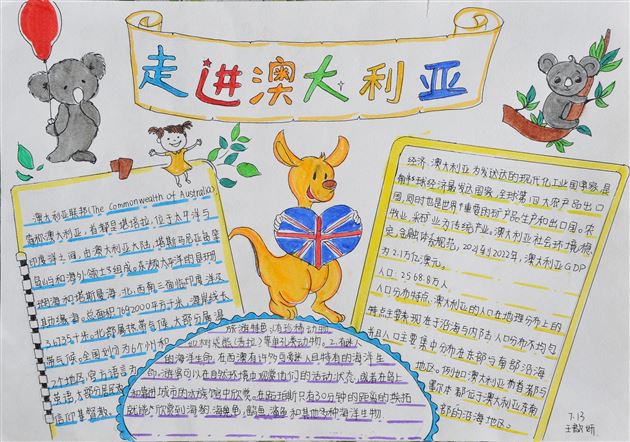 走进澳大利亚
澳大利亚联邦(The Commonwealth of Australia)
简称澳大利亚,首都是堪培拉,位于太平洋与
印度洋之间,由澳大利亚大陆,塔斯马尼亚岛等
岛屿和海外领土组成。东濒太平洋的珊瑚
海和塔斯曼海,北、西、南三面临印度洋及
其边缘海。总面积7692000平方千米,海岸线长
36735千米。北部属热带气候,大部分属温
带气候。全国划分为6个州和
2个地区,官方语言为
英语,大部分居民
信仰基督教。
旅游特色:1.有珍稀动物
比如树袋熊(考拉)等单孔类动物。2.有迷人
的海洋生命,在西澳有许多只受惊且独有的海洋生
物。游客可以在自然环境中观察它们的活动状态,或者在岸上
和靠进城市的水族馆中欣赏。在路托斯只有30分钟的距离的珠珀
就能欣赏到海豹海龟,鲸鱼,鲨鱼和其他多种海洋生物
经济:澳大利亚为发达的现代化工业国家,是
南半球经济最发达国家,全球第四大农产品出口
国,同时也是世界重要的矿产品生产和出口国。农
牧业,采矿业为传统产业。澳大利亚社会环境稳
定,金融体系规范,2021到2022年,澳大利亚GDP
为2.1万亿澳元。
人口:2568.8万人
人口分布特点:澳大利亚的人口在地理分布上的
特点主要表现在于沿海与内陆人口分布不均匀
并且人口主要集中分布在东部与南部沿海
地区。而且澳大利亚前首都与
墨尔本都位于澳大利亚东南
部的沿海地区。
7.13